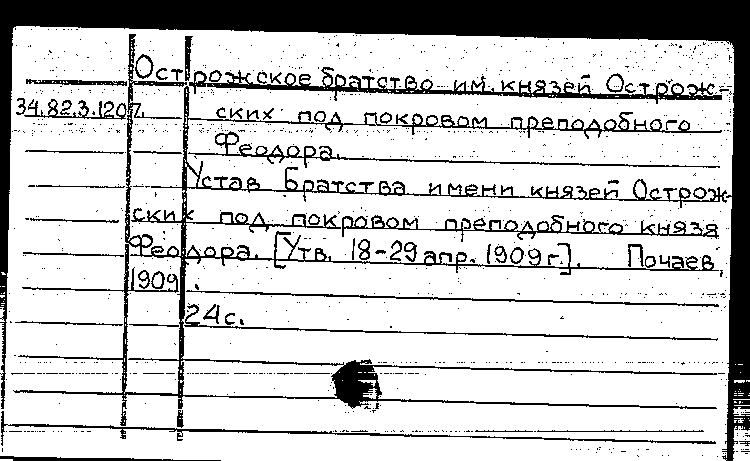 Острожское братство им. князей Острож-
34.82.3.1207. ских под покровом преподобного
Феодора.
Устав Братства имени князей Острож-
ских под покровом преподобного князя
Феодора. [Утв. 18-29 апр. 1909 г.]. Почаев,
1909.
24 с.